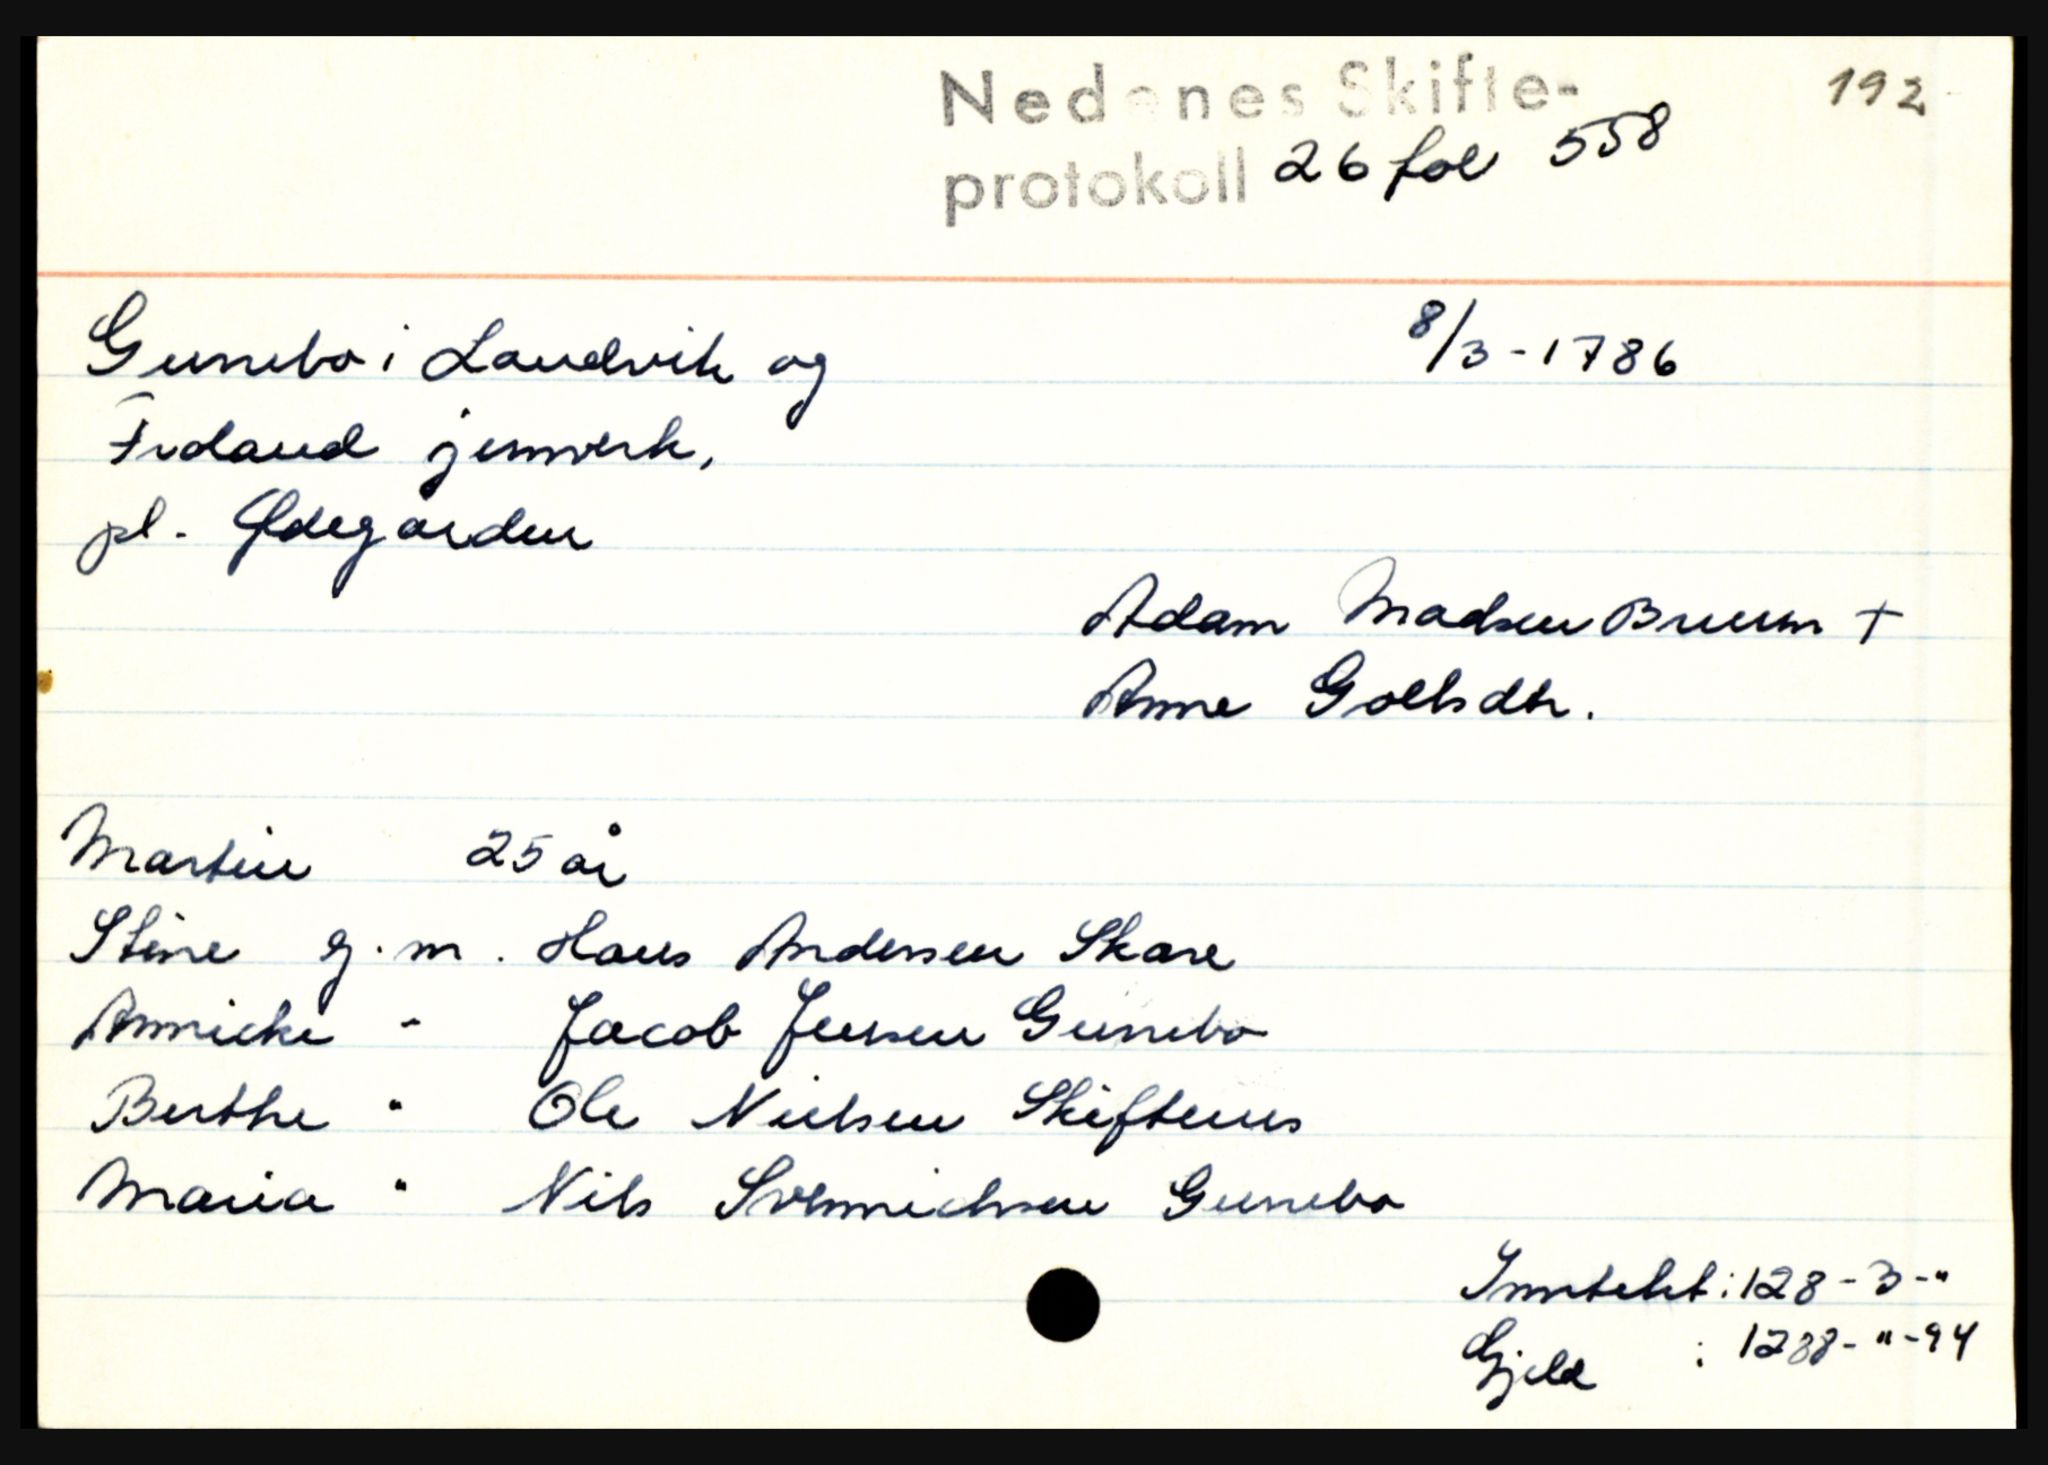 Nedenes Skifte- 192
protokoll 26 fol 558
Gunebo i Landvik og 8/3-1786
Froland jernverk,
pl. Ødegården
Adam Madsen Bruun +
Anne dtr.
Martin 25 år
Stine g.m. Hans Andersen Skare
Annicke - Jacob Jensen Gunebo
Berthe " Ole Nielsen Skiftenes
Maria " Nils Gunebo
Inntekt: 128-3-"
Gjeld : -"-94